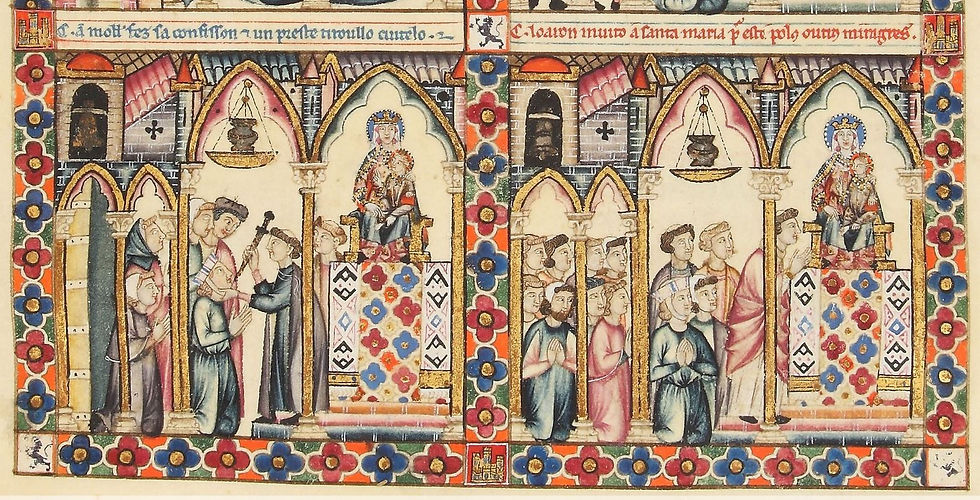 C. a moll' fez sa confisson ⁊ un preste tiroullo cuitelo.
C. loaron muito a santa maria p̃ este polꝯ outrꝯ miragres.